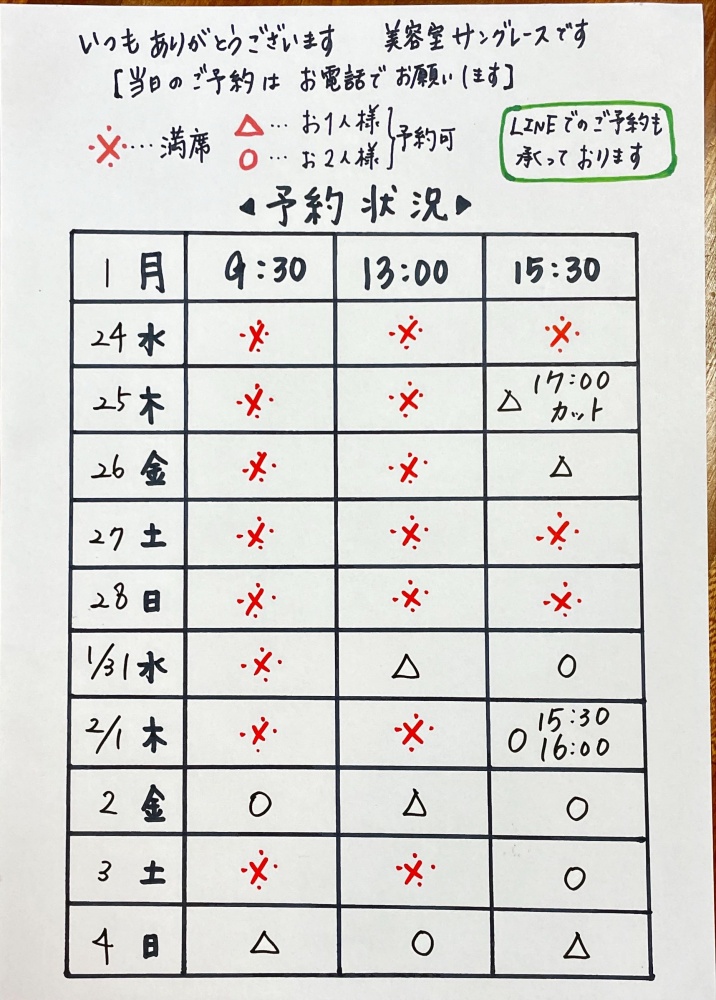 いつもありがとうございます 美容室サングレースです
[当日のご予約は お電話でお願いします]
※…満席 △…お1人様 ○…お2人様 予約可
LINEでのご予約も
承っております
◀予約状況▶
1月 9:30 13:00 15:30
24 水 ※ ※ ※
25 木 ※ ※ △ 17:00 カット
26 金 ※ ※ △
27 土 ※ ※ ※
28 日 ※ ※ ※
1/31 水 ※ △ ○
2/1 木 ※ ※ ○ 15:30 16:00
2 金 ○ △ ○
3 土 ※ ※ ○
4 日 △ ○ △